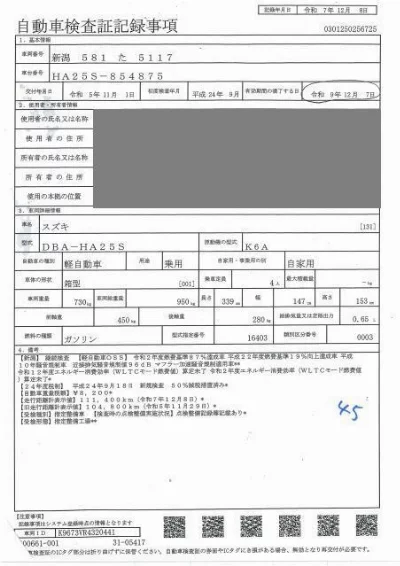 記録年月日 令和 7年12月 8日
自動車検査証記録事項
0301250256725
1. 基本情報
車両番号 新潟 581 た 5117
車台番号 HA25S-854875
交付年月日 令和 5年11月 1日 初度検査年月 平成24年 9月 有効期間の満了する日 令和 9年12月 7日
2. 使用者・所有者情報
使用者の氏名又は名称
使用者の住所
所有者の氏名又は名称
所有者の住所
使用の本拠の位置
3. 車両詳細情報
車名 スズキ [131]
型式 DBA-HA25S 原動機の型式 K6A
自動車の種別 軽自動車 用途 乗用 自家用・事業用の別 自家用
車体の形状 箱型 [001] 乗車定員 4人 最大積載量 -kg
車両重量 730kg 車両総重量 950kg 長さ 339cm 幅 147cm 高さ 153cm
前軸重 450kg 後軸重 280kg 総排気量又は定格出力 0.65L
燃料の種類 ガソリン 型式指定番号 16403 類別区分番号 0003
4. 備考
【新潟】 継続検査 【軽自動車OSS】 令和2年度燃費基準87%達成車 平成22年度燃費基準
10年騒音規制車 近接排気騒音規制値96dB マフラー加速騒音規制適用車**
令和12年度エネルギー消費効率(WLTCモード燃費値)算定未了 令和2年度エネルギー消費効率(WLTCモード燃費値
)算定未了*
【24年度税制】 平成24年9月18日 新規検査 50%減税措置済み*
【自動車重量税額】 ¥8,200*
【走行距離計表示値】 111,400km (令和7年12月8日)*
【旧走行距離計表示値】 104,800km (令和5年11月29日)*
【受検種別】 指定整備車 【検査時の点検整備実施状況】 点検整備記録簿記載あり*
【受検形態】 指定整備工場**
45
【注意事項】
記録事項はシステム登録時点の情報となります
車両ID K9673VR4320441
00661-001 31-05417
車検査証のICタグ部分は折り曲げずに保管ください。自動車検査証の券面やICタグにき損がある場合、無効となり再交付が必要です。